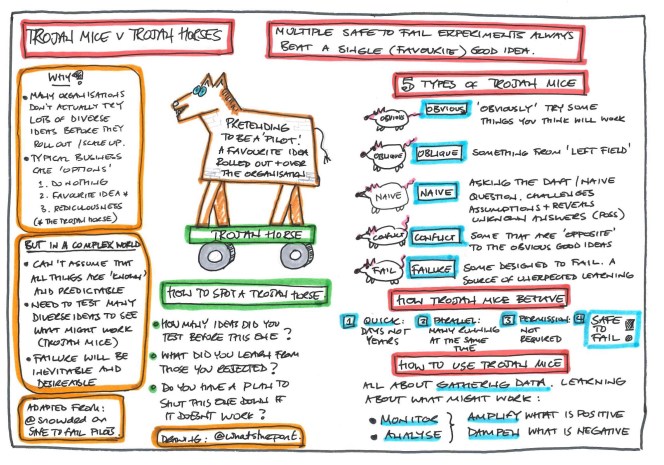 TROJAN MICE V TROJAN HORSES
MULTIPLE SAFE TO FAIL EXPERIMENTS ALWAYS
BEAT A SINGLE (FAVOURITE) GOOD IDEA.
WHY?
• MANY ORGANISATIONS
DON'T ACTUALLY TRY
LOTS OF DIVERSE
IDEAS BEFORE THEY
ROLL OUT / SCALE UP.
• TYPICAL BUSINESS
CASE 'OPTIONS'
1. DO NOTHING
2. FAVOURITE IDEA *
3. REDICULOUSNESS
(* THE TROJAN HORSE)
BUT IN A COMPLEX WORLD
• CAN'T ASSUME THAT
ALL THINGS ARE 'KNOWN'
AND PREDICTABLE
• NEED TO TEST MANY
DIVERSE IDEAS TO SEE
WHAT MIGHT WORK
(TROJAN MICE)
• FAILURE WILL BE
INEVITABLE AND
DESIREABLE
ADAPTED FROM:
@snowded on
SAFE TO FAIL PILOTS.
PRETENDING
TO BE A 'PILOT'.
A FAVOURITE IDEA
ROLLED OUT + OVER
THE ORGANISATION
TROJAN HORSE
HOW TO SPOT A TROJAN HORSE.
• HOW MANY IDEAS DID YOU
TEST BEFORE THIS ONE?
• WHAT DID YOU LEARN FROM
THOSE YOU REJECTED?
• DO YOU HAVE A PLAN TO
SHUT THIS ONE DOWN IF
IT DOESN'T WORK?
DRAWING: @whatsthepont.
5 TYPES OF TROJAN MICE
OBVIOUS OBVIOUS 'OBVIOUSLY' TRY SOME
THINGS YOU THINK WILL WORK
OBLIQUE OBLIQUE SOMETHING FROM 'LEFT FIELD'
NAIVE NAIVE ASKING THE DAFT/NAIVE
QUESTION, CHALLENGES
ASSUMPTIONS + REVEALS
UNKNOWN ANSWERS (POSS)
CONFLICT CONFLICT SOME THAT ARE 'OPPOSITE'
TO THE OBVIOUS GOOD IDEAS
FAIL FAILURE SOME DESIGNED TO FAIL. A
SOURCE OF UNEXPECTED LEARNING
HOW TROJAN MICE BEHAVE
1 QUICK:
DAYS NOT
YEARS
2 PARALLEL:
MANY RUNNING
AT THE SAME
TIME
3 PERMISSION:
NOT
REQUIRED
4 SAFE
TO
FAIL!
HOW TO USE TROJAN MICE
ALL ABOUT GATHERING DATA. LEARNING
ABOUT WHAT MIGHT WORK:
• MONITOR } AMPLIFY WHAT IS POSITIVE
• ANALYSE } DAMPEN WHAT IS NEGATIVE